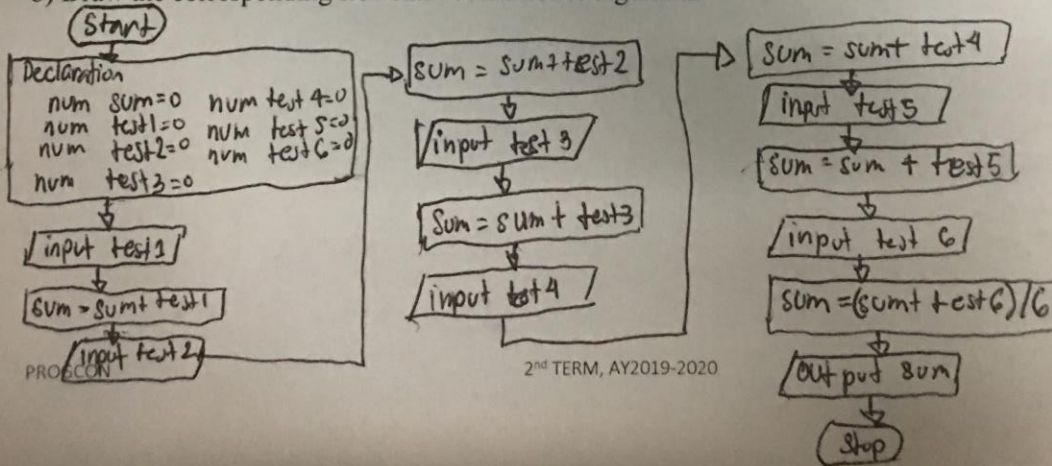 Start
Declaration
num sum=0 num test 4=0
num test1=0 num test 5=0
num test2=0 num test 6=0
num test3=0
input test1
sum=sum+test1
input test2
sum = sum+test2
input test 3
Sum = sum + test3
input test4
sum = sum+ test4
input test5
sum = sum + test5
input test 6
sum =(sum+ test6)/6
output sum
Stop
PROSCON
2nd TERM, AY2019-2020